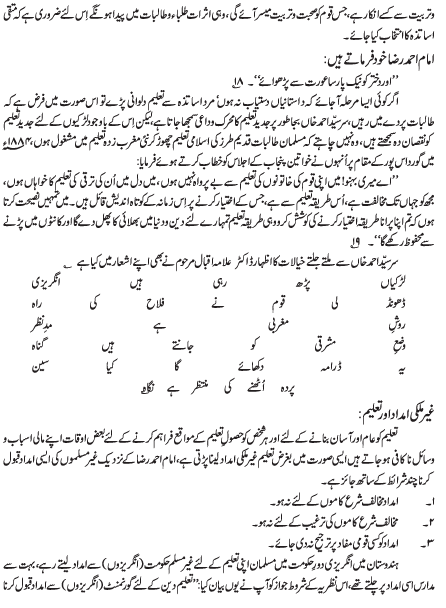 وتربیت سے کسے انکار رہے، جس قوم کو صحبت وتربیت میسر آئے گی، وہی اثرات طلباء وطالبات میں پیدا ہونگے اِس لئے ضروری ہے کہ متقی
اساتذہ کا انتخاب کیا جائے۔
امام احمد رضا خود فرماتے ہیں:
’’اور دختر کو نیک پارسا عورت سے پڑھوائے‘‘۔ ۱۸
اگر کوئی ایسا مرحلہ آ جائے کہ داستانیاں دستیاب نہ ہوں‘ مرد اساتذہ سے تعلیم دلوانی پڑے تو اس صورت میں فرض ہے کہ
طالبات پردے میں رہیں، سرسیّد احمد خاں بجا طور پر جدید تعلیم کا محرک وداعی سمجھا جاتا ہے، لیکن اِس کے باوجود لڑکیوں کے لئے جدید تعلیم
کو نقصان دہ سمجھتے ہیں، وہ نہیں چاہتے کہ مسلمان طالبات قدیم طرز کی اسلامی تعلیم چھوڑ کر نئی مغرب زدہ تعلیم میں مشغول ہوں، ۱۸۸۴ء
میں گورداس پور کے مقام پر اُنہوں نے خواتین پنجاب کے اجلاس کو خطاب کرتے ہوئے فرمایا:
’’اے میری بہنو! میں اپنی قوم کی خاتونوں کی تعلیم سے بے پرواہ نہیں ہوں، میں دل میں اُن کی ترقی کی تعلیم کا خواہاں ہوں،
مجھ کو جہاں تک مخالفت ہے، اُس طریقہ تعلیم سے ہے، جس کے اختیار کرنے پر اِس زمانہ کے کوتاہ اندیش قائل ہیں۔ میں تمہیں نصیحت کرتا
ہوں کہ تم اپنا پرانا طریقہ اختیار کرنے کی کوشش کرو وہی طریقہ تعلیم تمہارے لئے دین ودنیا میں بھلائی کا پھل دے گا اور کانٹوں میں پڑنے
سے محفوظ رکھے گا‘‘۔ ۱۹
سرسیّد احمد خاں سے ملتے جلتے خیالات کا اظہار ڈاکٹر علامہ اقبال مرحوم نے بھی اپنے اشعار میں کیا ہے
لڑکیاں پڑھ رہی ہیں انگریزی
ڈھونڈ لی قوم نے فلاح کی راہ
روشِ مغربی ہے مدِنظر
وضعِ مشرقی کو جانتے ہیں گناہ
یہ ڈرامہ دکھائے گا کیا سین
پردہ اُٹھنے کی منتظر ہے نگاہ
غیر ملکی امداد اور تعلیم:
تعلیم کو عام اور آسان بنانے کے لئے اور ہر شخص کو حصولِ تعلیم کے مواقع فراہم کرنے کے لئے بعض اوقات اپنے مالی اسباب و
وسائل نا کافی ہو جاتے ہیں ایسی صورت میں بغرضِ تعلیم غیر ملکی امداد لینا پڑتی ہے، امام احمد رضا کے نزدیک غیر مسلموں کی ایسی امداد قبول
کرنا چند شرائط کے ساتھ جائز ہے۔
۱۔ امداد مخالف شرع کاموں کے لئے نہ ہو۔
۲۔ مخالف شرع کاموں کی ترغیب کے لئے نہ ہو۔
۳۔ امداد کو کسی قومی مفاد پر ترجیح نہ دی جائے۔
ہندوستان میں انگریزی دورِ حکومت میں مسلمان اپنی تعلیم کے لئے غیر مسلم حکومت (انگریزوں) سے امداد لیتے رہے، بہت سے
مدارس اسی امداد پر چلتے تھے، اس نظریہ کے شروط جواز کو آپ نے یوں بیان کیا: ’’تعلیم دین کے لئے گورنمنٹ (انگریزوں) سے امداد قبول کرنا